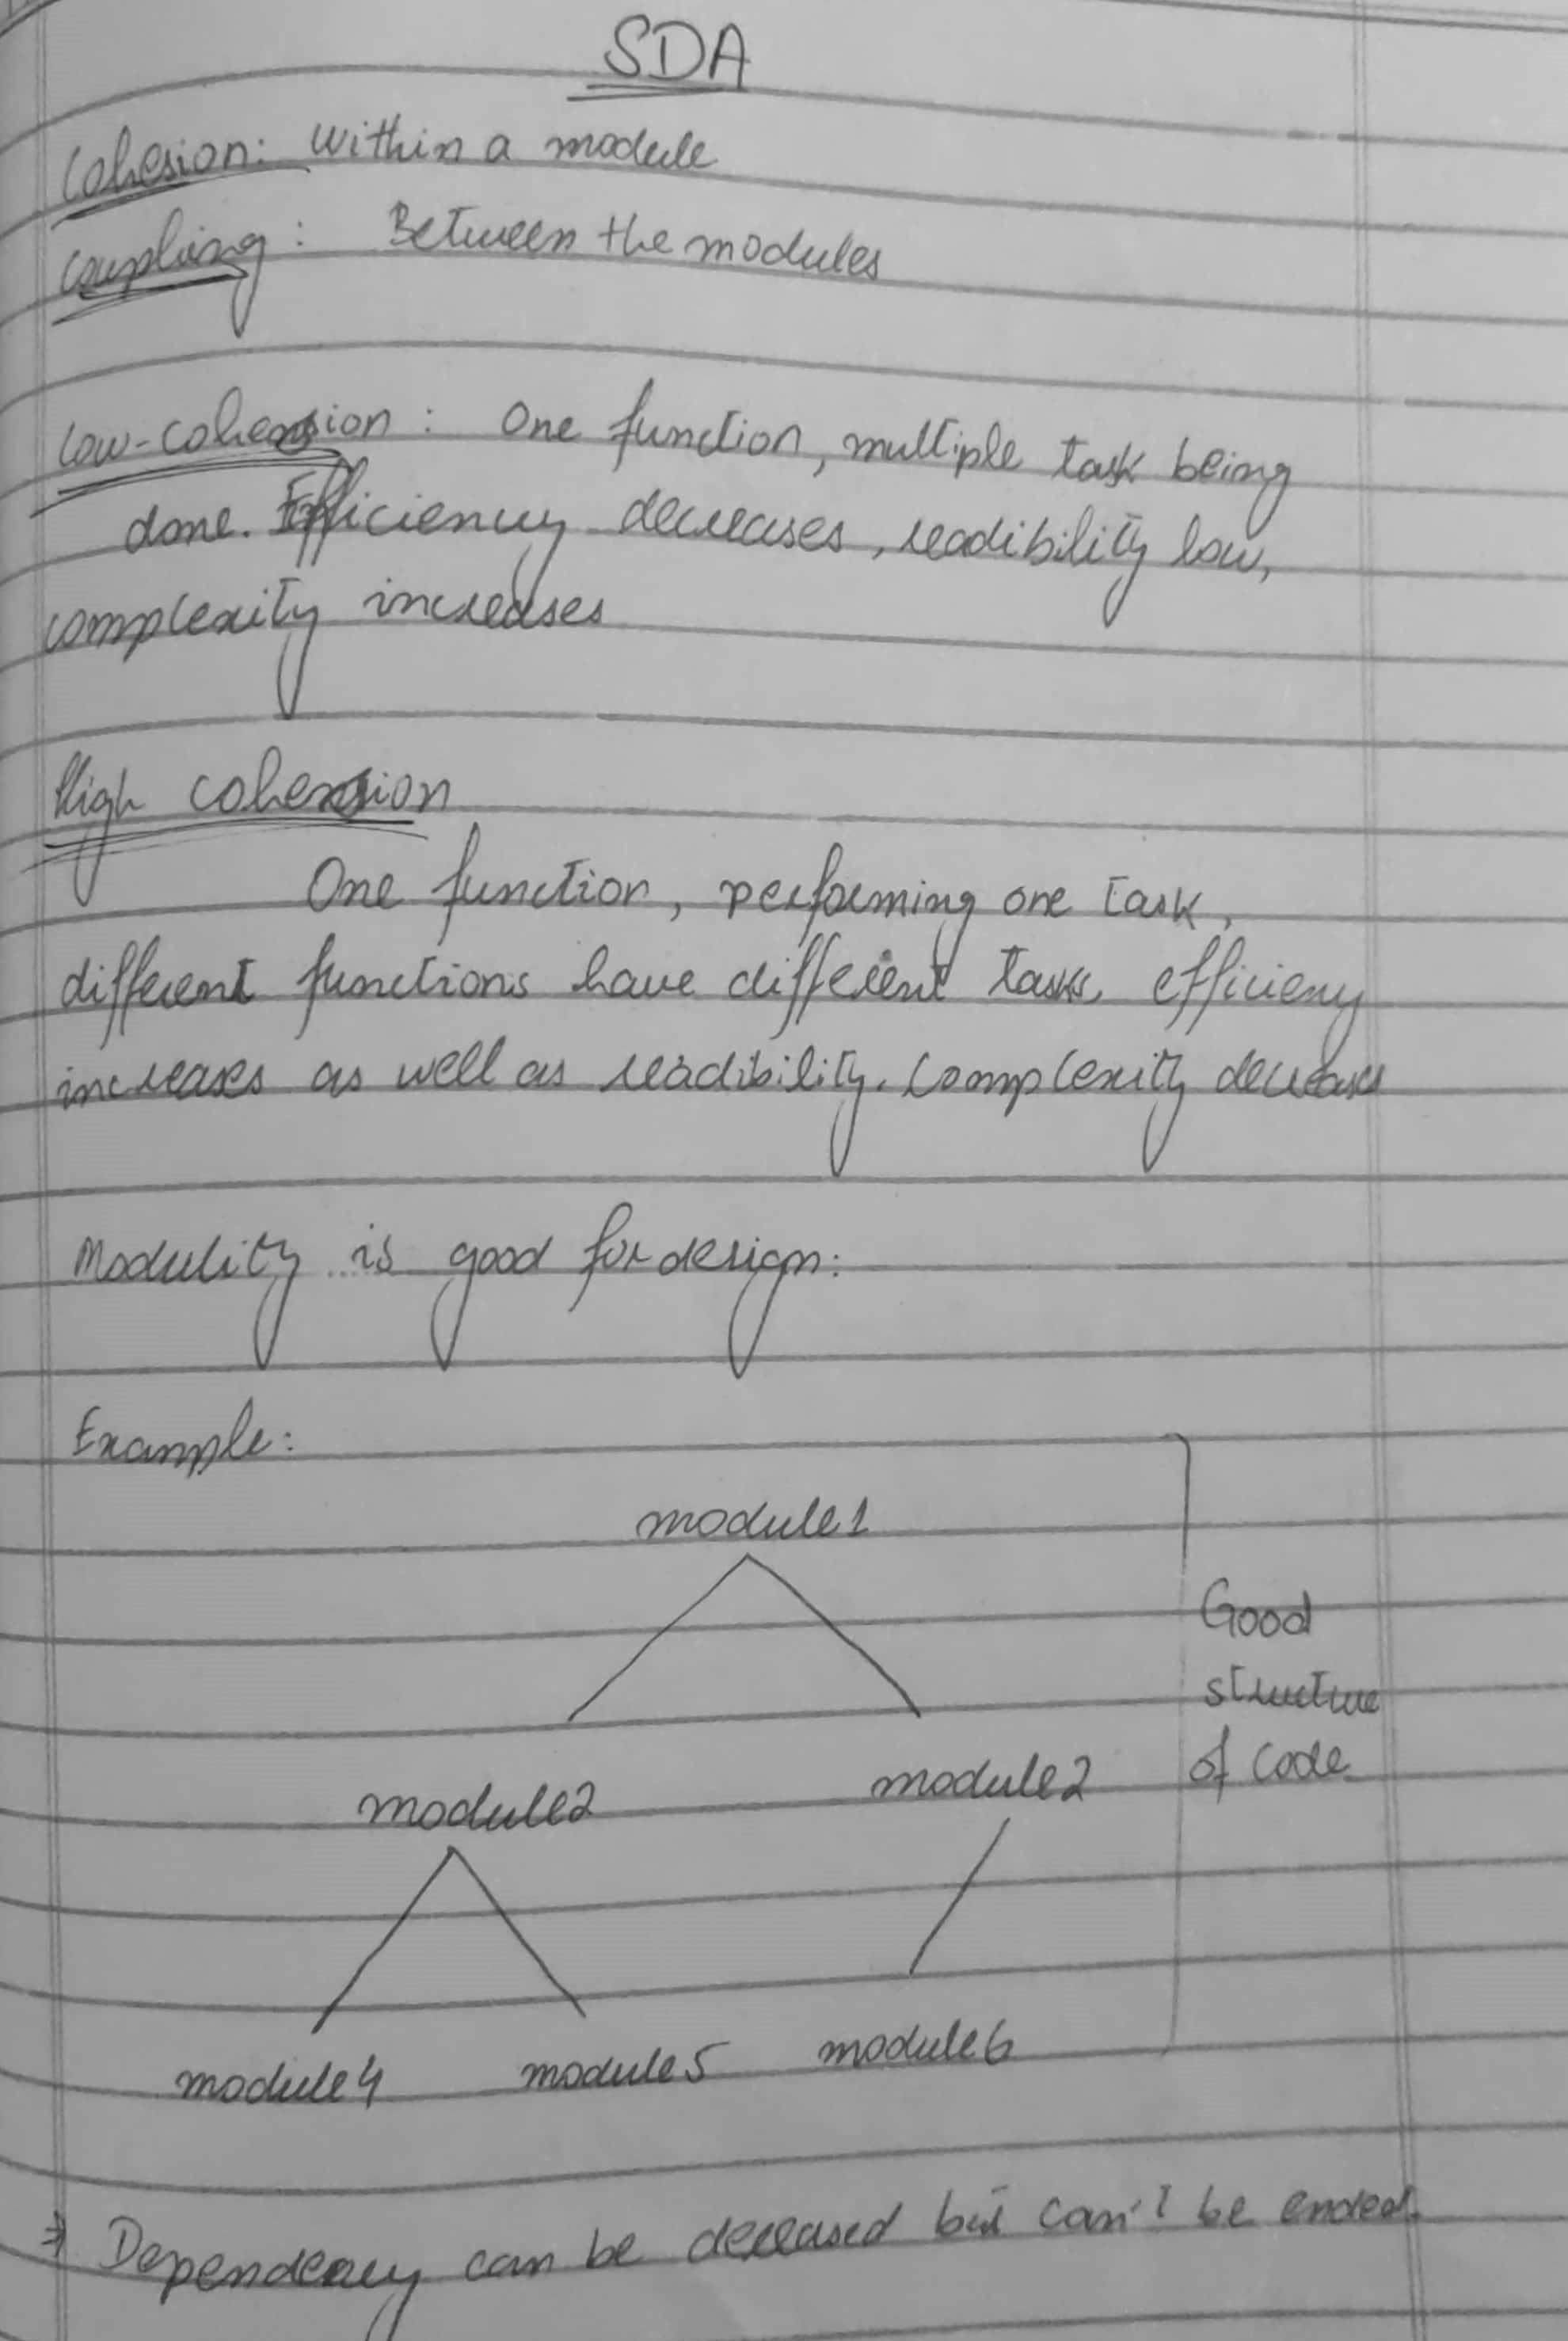 SDA
Cohesion: Within a module
Coupling: Between the modules
Low-cohension: One function, multiple task being
done. Efficiency decreases, readibility low,
complexity increases
High cohension
One function, performing one task,
different functions have different tasks. efficieny
increases as well as readibility. Complexity decreases
Modulity is good for design:
Example:
module1
Good
structure
of code
module2 module2
module4 module5 module6
⇒ Dependency can be decreased but can't be ended.